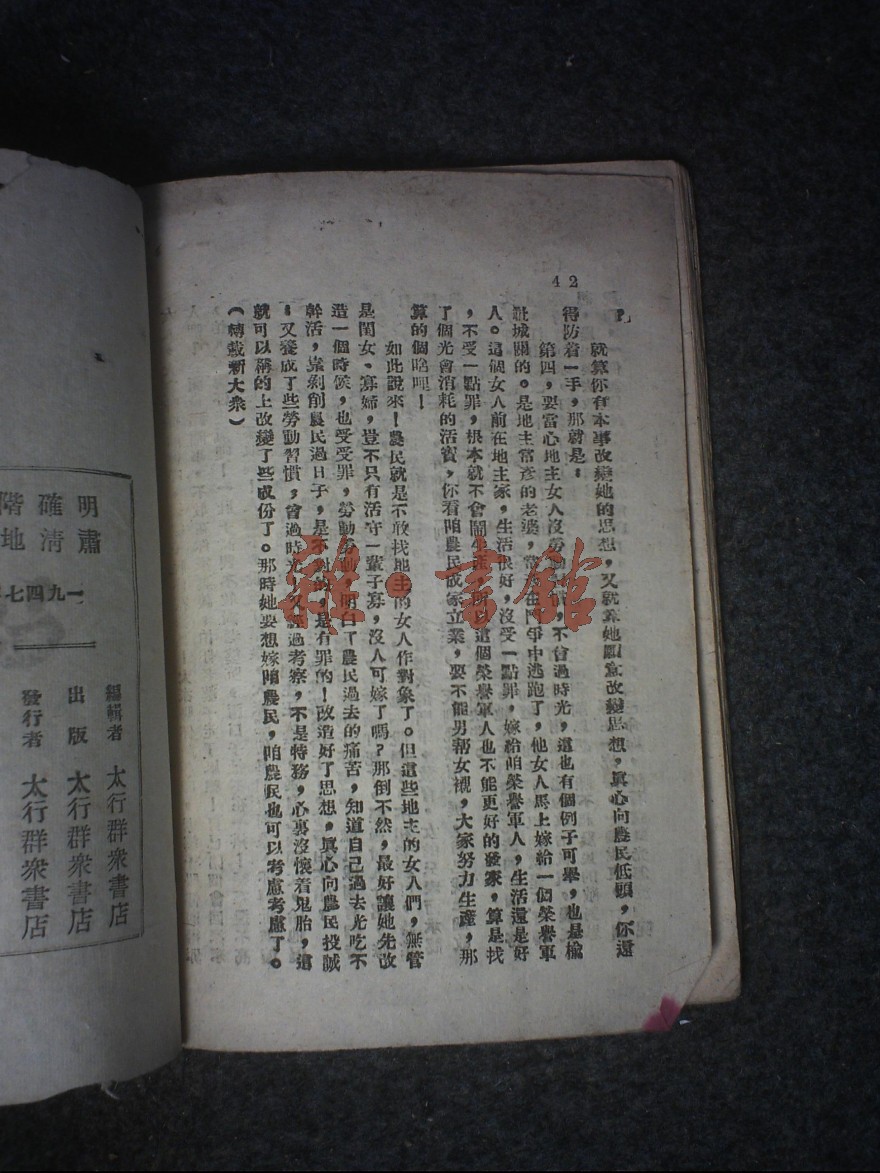 42
?」
就算你有本事改變她的思想,又就算她願意改變思想,眞心向農民低頭,你還
得防着一手,那就是:
第四,要當心地主女人沒勞動 ,不會過時光,這也有個例子可舉,也是榆
社城關的。是地主常彥的老婆,常彥在鬥爭中逃跑了,他女人馬上嫁給一個榮譽軍
人。這個女人前在地主家,生活很好,沒受一點罪,嫁給咱榮譽軍人,生活還是好
,不受一點罪,根本就不會鬧生產,所以這個榮譽軍人也不能更好的發家,算是找
了個光會消耗的活寶,你看咱農民成家立業,要不能男帮女襯,大家努力生產,那
算的個啥哩!
如此說來!農民就是不敢找地主的女人作對象了。但這些地主的女人們,無管
是閨女、寡婦,豈不只有活守一輩子寡,沒人可嫁了嗎?那倒不然,最好讓她先改
造一個時候,也受受罪,勞動勞動,明白了農民過去的痛苦,知道自己過去光吃不
幹活,靠剝削農民過日子,是不對的,是有罪的!改造好了思想,眞心向農民投誠
;又變成了些勞動習慣,會過時光,又經過考察,不是特務,心裏沒懷着鬼胎,這
就可以稱的上改變了些成份了。那時她要想嫁咱農民,咱農民也可以考慮考慮了。
(轉載新大衆)
雜·書館
明確階
肅清地
一九四七年
編輯者 太行群衆書店
出版 太行群衆書店
發行者 太行群衆書店